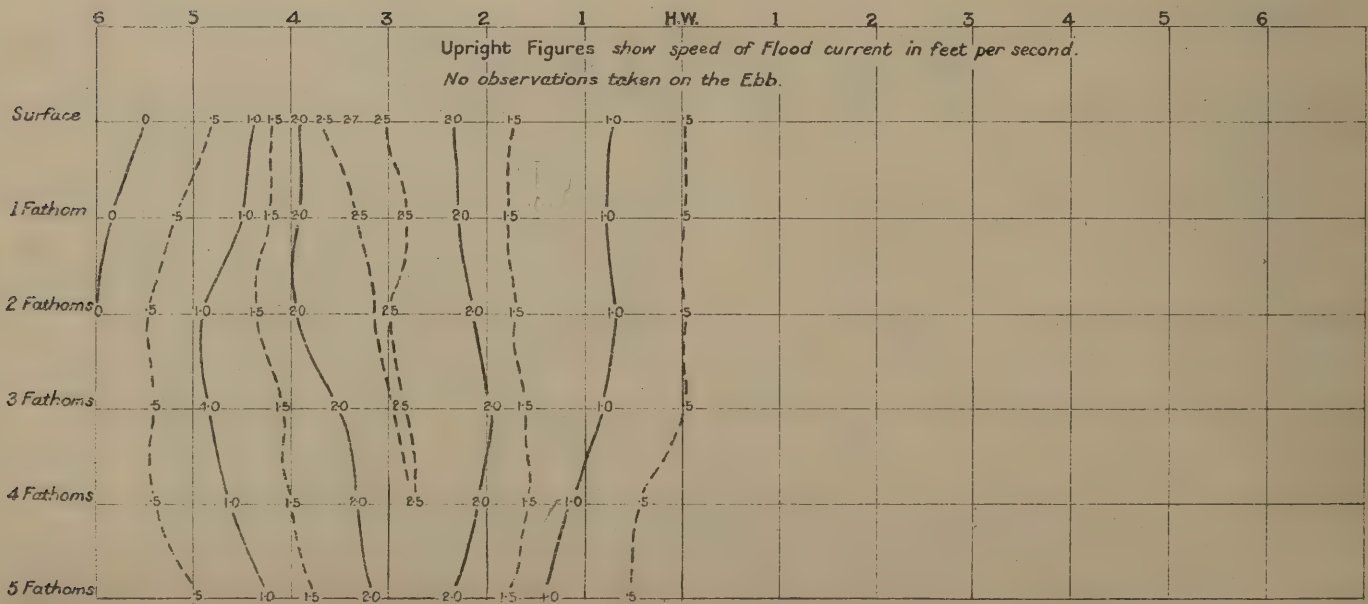 6 5 4 3 2 1 H.W. 1 2 3 4 5 6
Upright Figures show speed of Flood current in feet per second.
No observations taken on the Ebb.
Surface 0 .5 1.0 1.5 2.0 2.5 2.7 2.5 2.0 1.5 1.0 .5
1 Fathom 0 .5 1.0 1.5 2.0 2.5 2.5 2.0 1.5 1.0 .5
2 Fathoms 0 .5 1.0 1.5 2.0 2.5 2.0 1.5 1.0 .5
3 Fathoms .5 1.0 1.5 2.0 2.5 2.0 1.5 1.0 .5
4 Fathoms .5 1.0 1.5 2.0 2.5 2.0 1.5 1.0 .5
5 Fathoms .5 1.0 1.5 2.0 2.0 1.5 1.0 .5